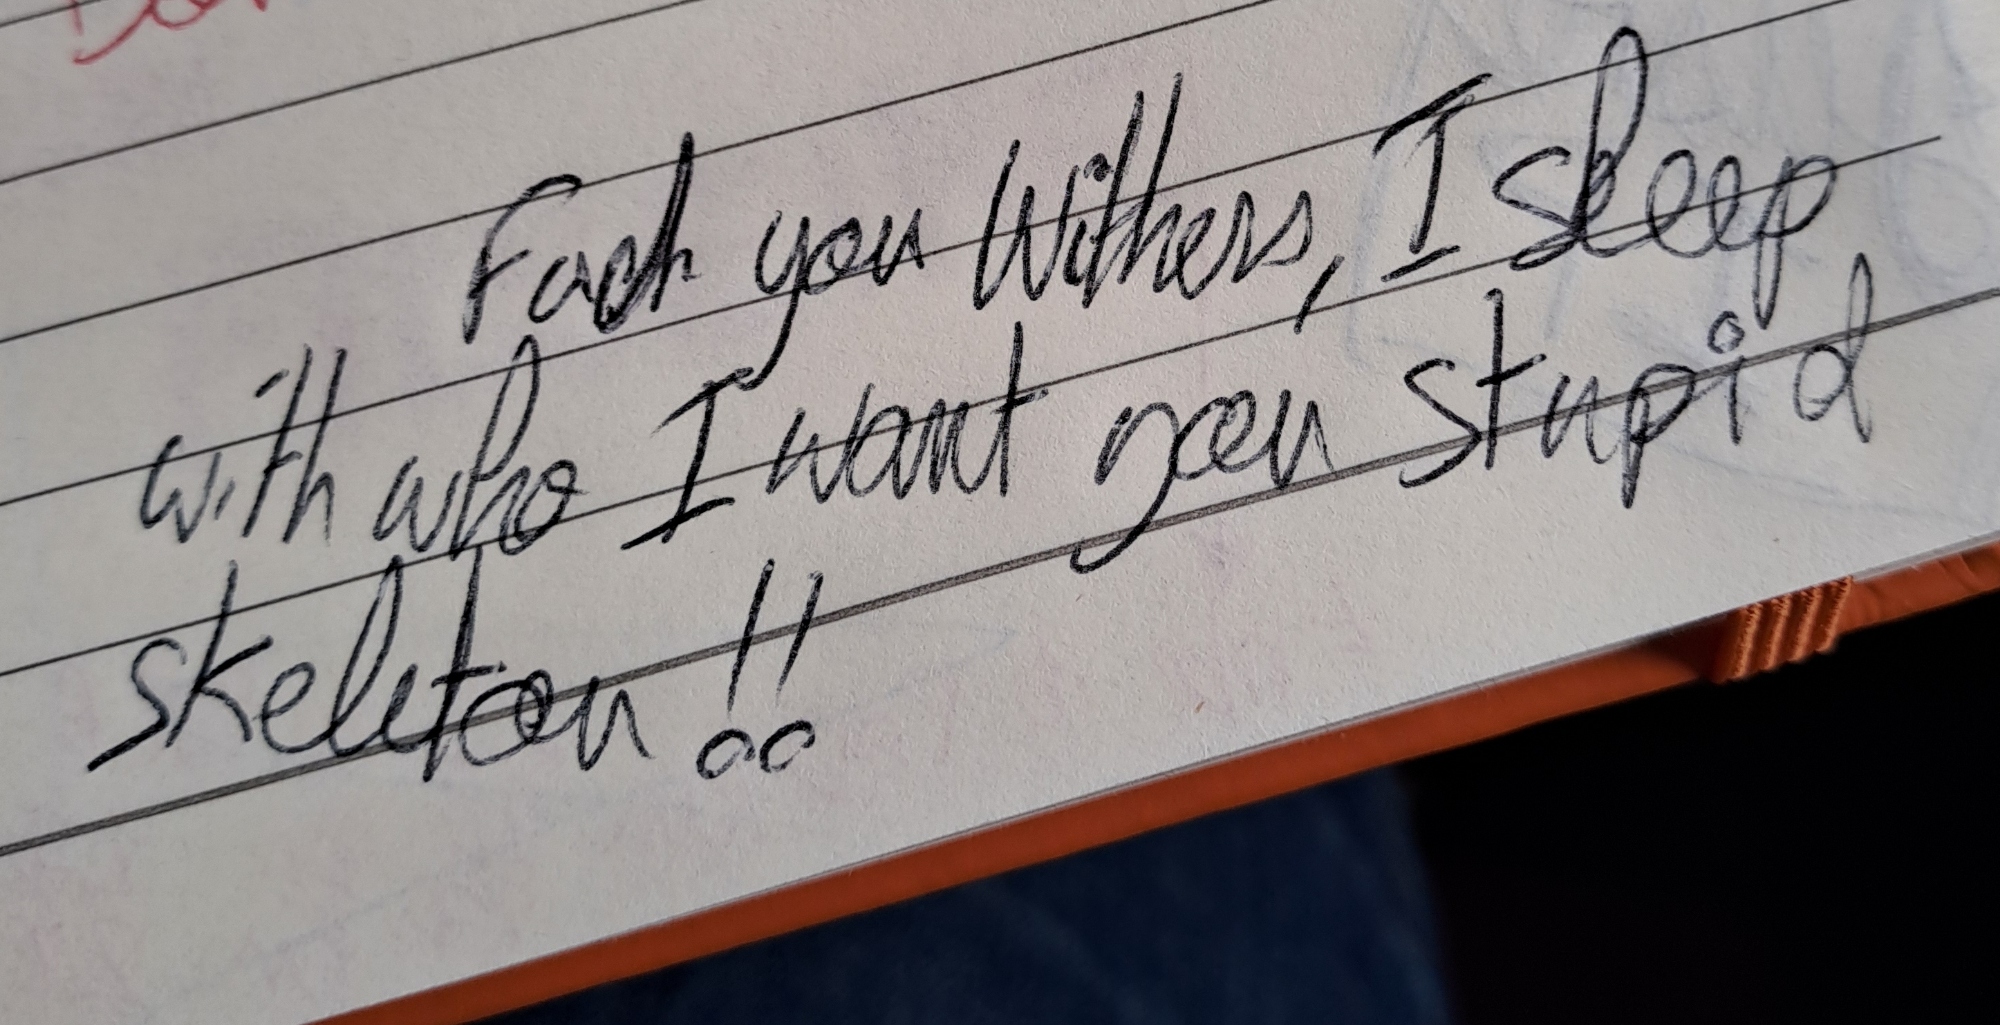 Fuck you Withers, I sleep
with who I want you stupid
skeleton!!